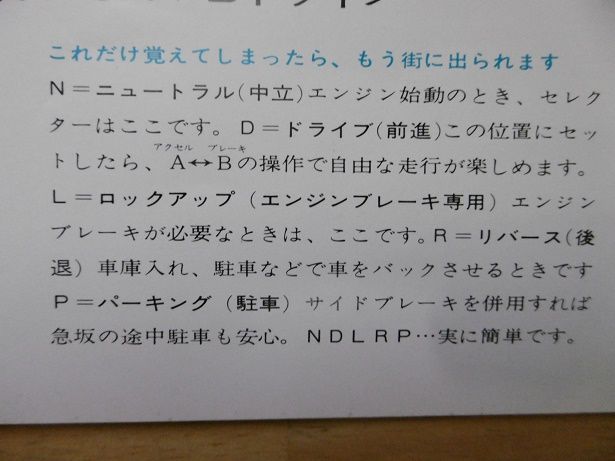 これだけ覚えてしまったら、もう街に出られます
N＝ニュートラル(中立)エンジン始動のとき、セレク
ターはここです。D＝ドライブ(前進)この位置にセッ
アクセル ブレーキ
トしたら、A↔Bの操作で自由な走行が楽しめます。
L＝ロックアップ（エンジンブレーキ専用）エンジン
ブレーキが必要なときは、ここです。R＝リバース(後
退）車庫入れ、駐車などで車をバックさせるときです
P＝パーキング（駐車）サイドブレーキを併用すれば
急坂の途中駐車も安心。NDLRP…実に簡単です。